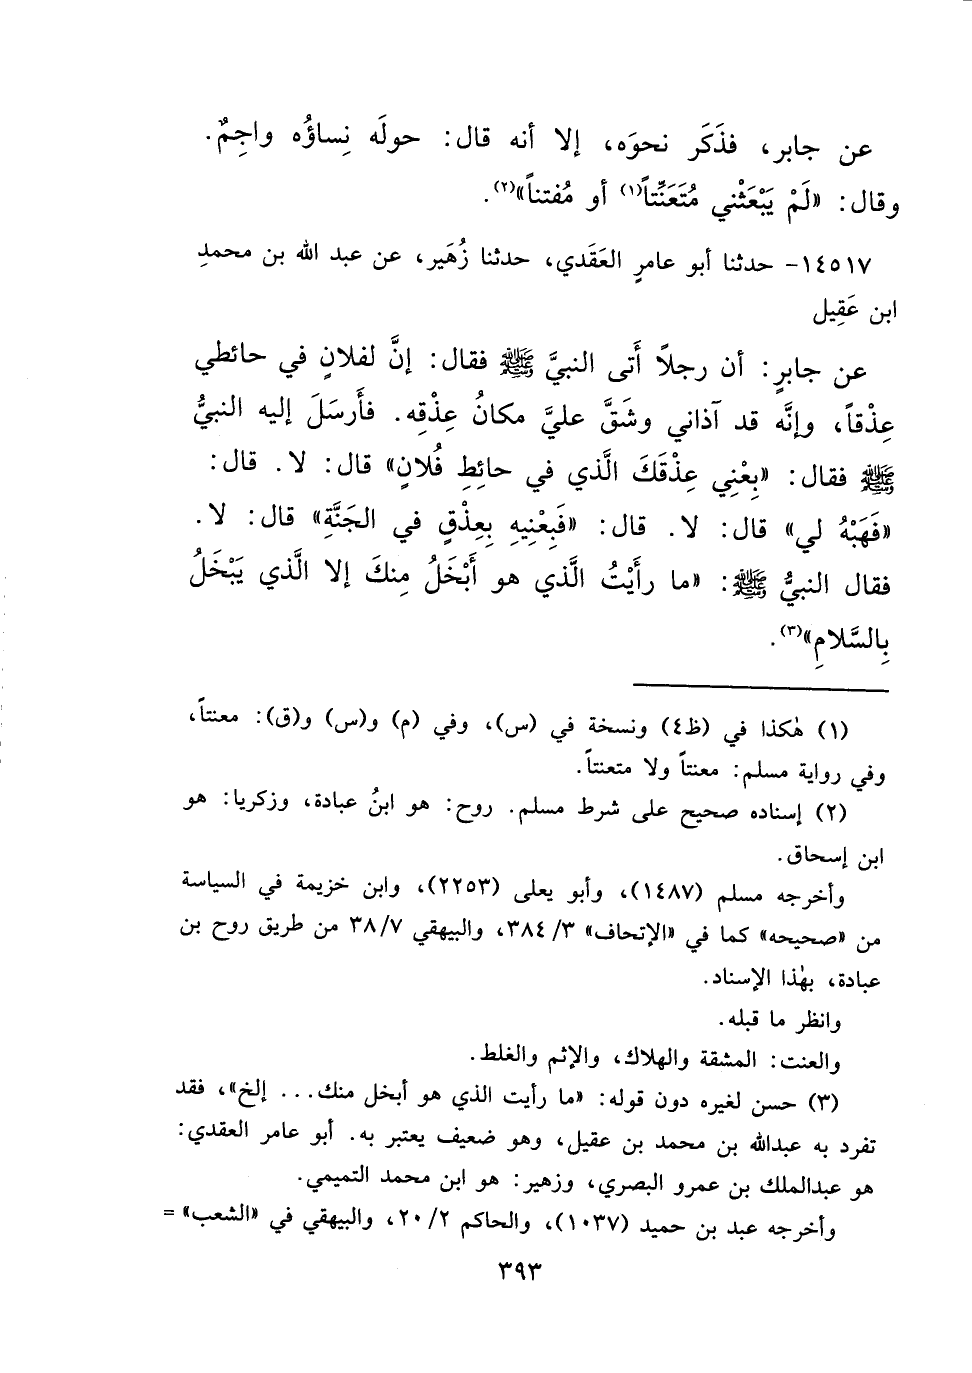 عن جابر، فذَكَر نحوَه، إلا أنه قال: حولَه نِساؤُه واجِمٌ.
وقال: «لَمْ يَبْعَثْني مُتَعَنِّتاً(١) أو مُفتناً»(٢).
١٤٥١٧- حدثنا أبو عامرٍ العَقَدي، حدثنا زُهَير، عن عبد الله بن محمدِ
ابن عَقِيل
عن جابرٍ: أن رجلاً أَتى النبيَّ ﷺ فقال: إنَّ لفلانٍ في حائطي
عِذْقاً، وإنَّه قد آذاني وشَقَّ عليَّ مكانُ عِذْقِه. فأَرسَلَ إليه النبيُّ
ﷺ فقال: «بِعْنِي عِذْقَكَ الَّذي في حائِطِ فُلانٍ» قال: لا. قال:
«فَهَبْهُ لي» قال: لا. قال: «فَبِعْنِيهِ بِعِذْقٍ في الجَنَّةِ» قال: لا.
فقال النبيُّ ﷺ: «ما رأَيْتُ الَّذي هو أَبْخَلُ مِنكَ إلا الَّذي يَبْخَلُ
بِالسَّلامِ»(٣).
(١) هٰكذا في (ظ٤) ونسخة في (س)، وفي (م) و(س) و(ق): معنتاً،
وفي رواية مسلم: معنتاً ولا متعنتاً.
(٢) إسناده صحيح على شرط مسلم. روح: هو ابنُ عبادة، وزكريا: هو
ابن إسحاق.
وأخرجه مسلم (١٤٨٧)، وأبو يعلى (٢٢٥٣)، وابن خزيمة في السياسة
من «صحيحه» كما في «الإتحاف» ٣/ ٣٨٤، والبيهقي ٣٨/٧ من طريق روح بن
عبادة، بهٰذا الإسناد.
وانظر ما قبله.
والعنت: المشقة والهلاك، والإثم والغلط.
(٣) حسن لغيره دون قوله: «ما رأيت الذي هو أبخل منك... إلخ»، فقد
تفرد به عبدالله بن محمد بن عقيل، وهو ضعيف يعتبر به. أبو عامر العقدي:
هو عبدالملك بن عمرو البصري، وزهير: هو ابن محمد التميمي.
وأخرجه عبد بن حميد (١٠٣٧)، والحاكم ٢٠/٢، والبيهقي في «الشعب» =
٣٩٣